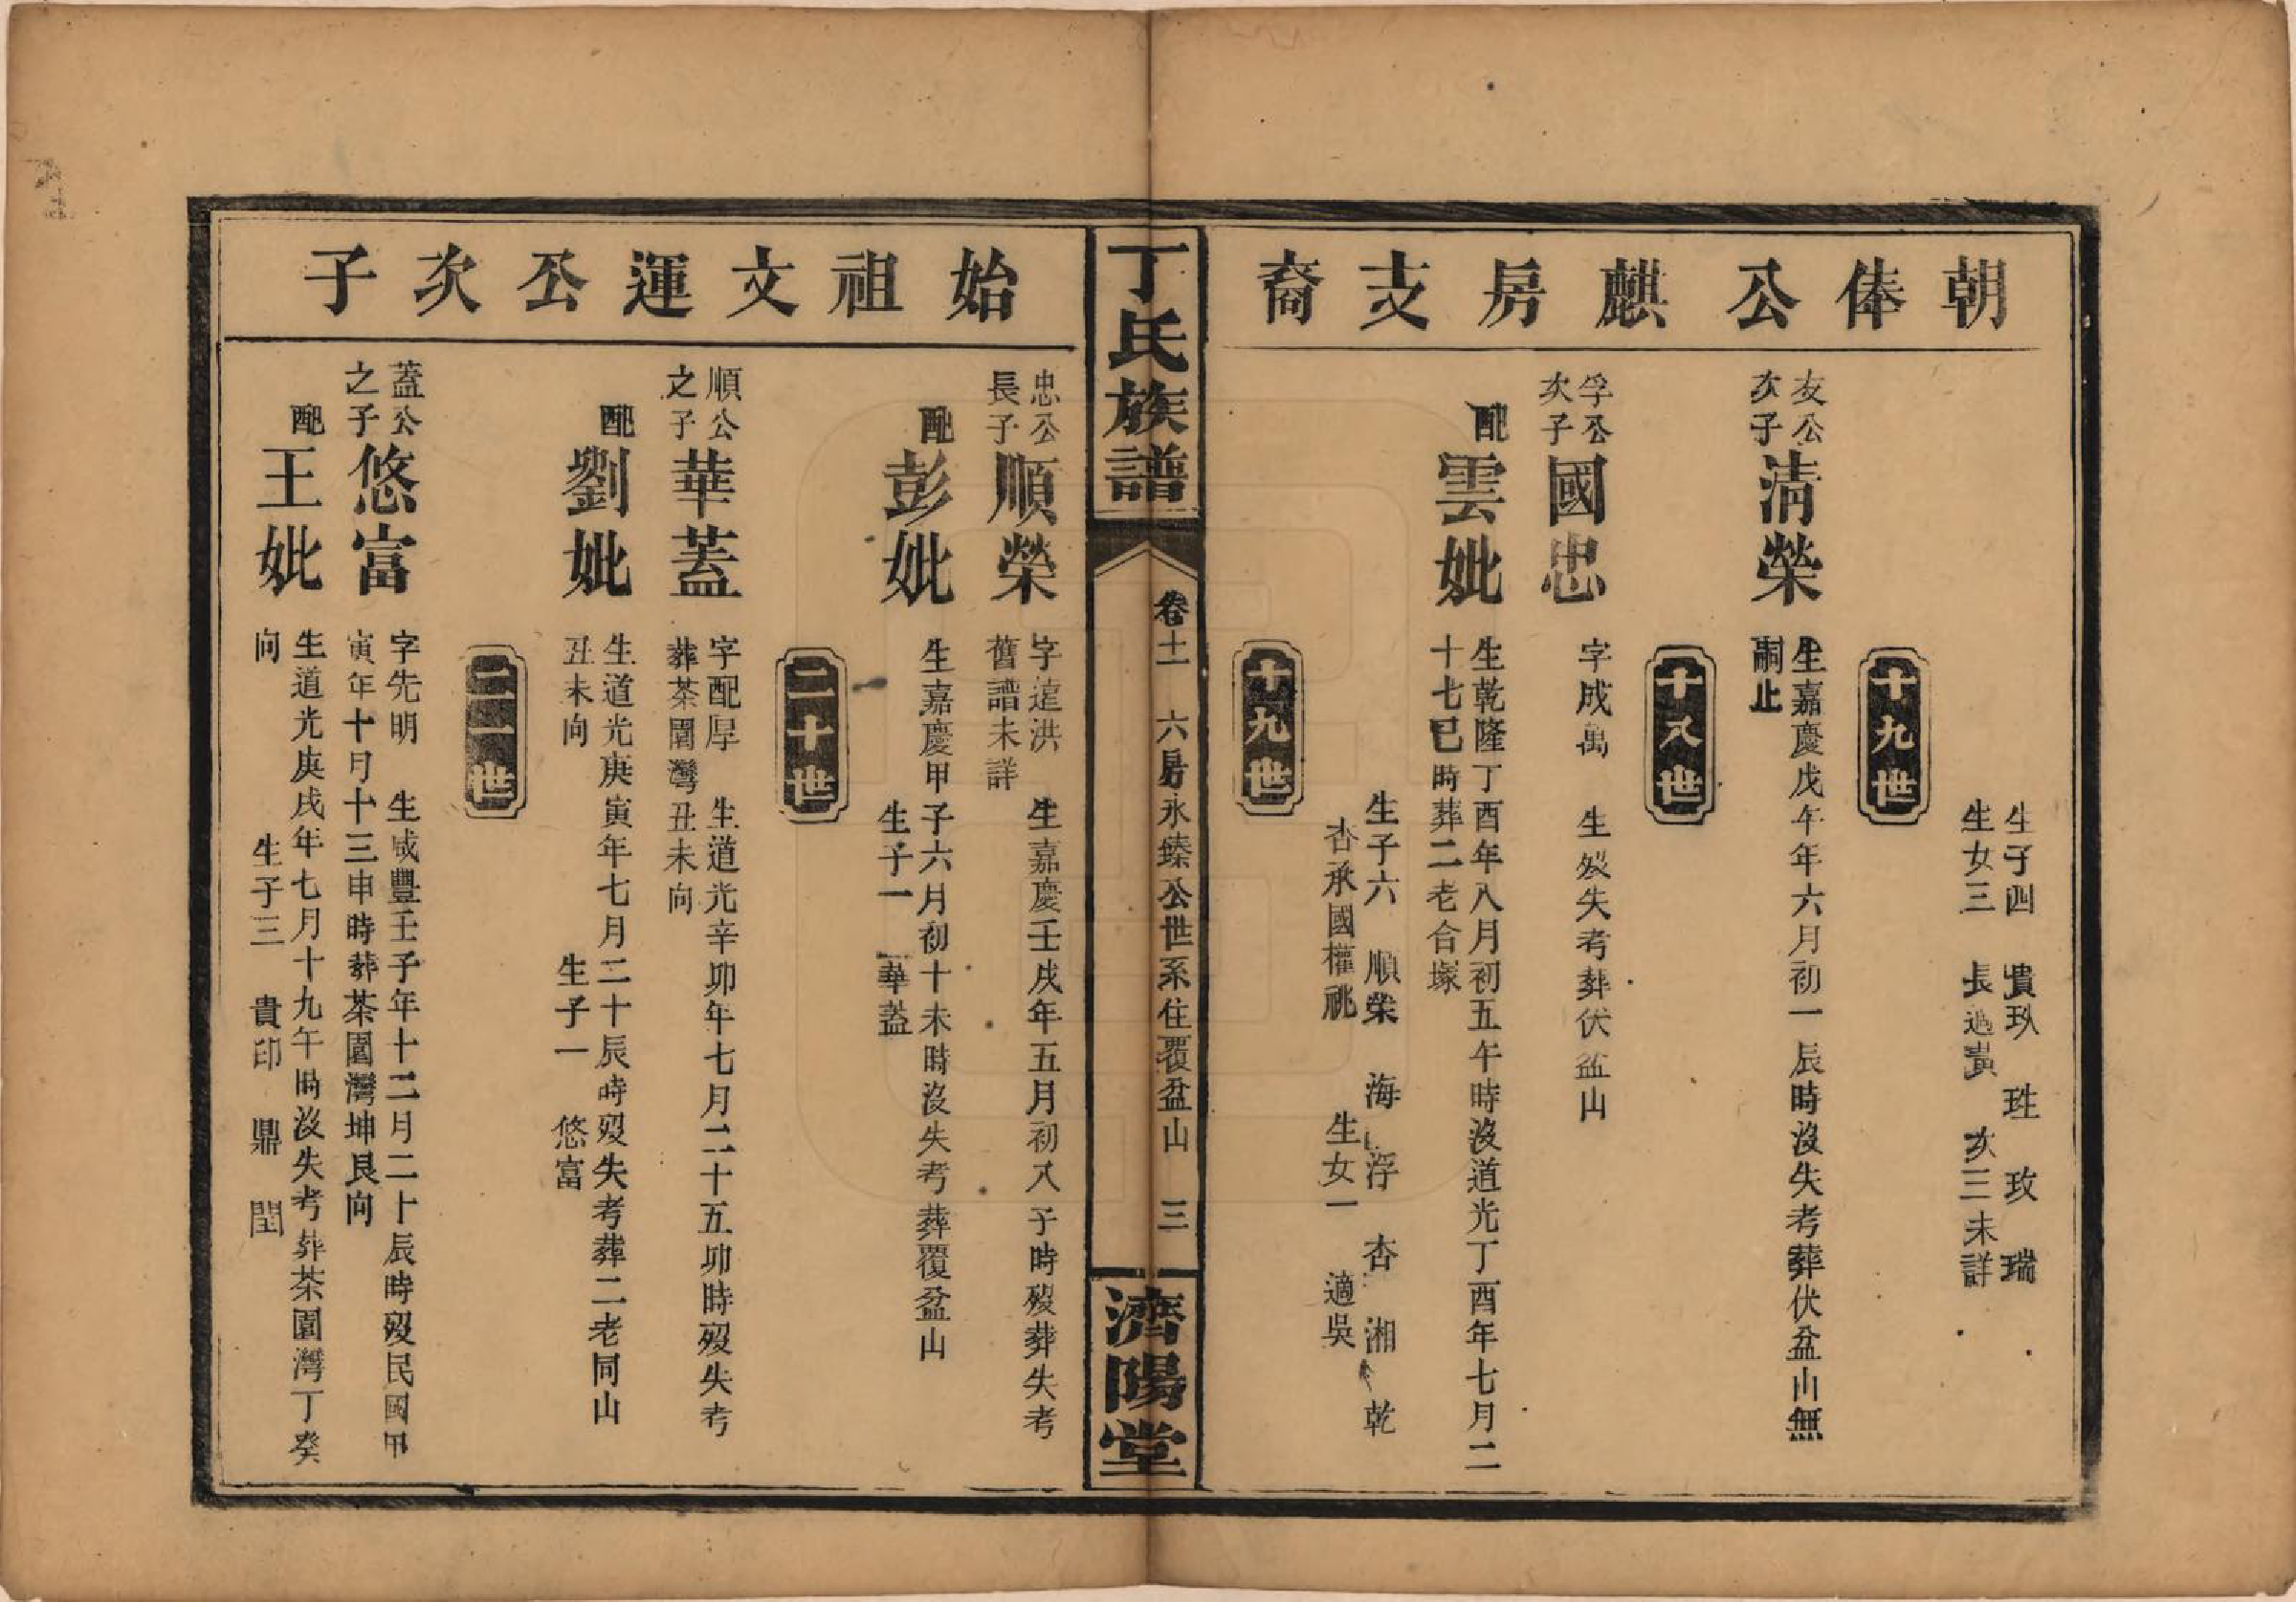 朝俸公麒房支裔
生子四　貴玖　珄　玫　瑞
生女三　長適黃　次三未詳
十九世
友公次子清榮
生嘉慶戊午年六月初一辰時沒失考葬伏盆山無
嗣止
十八世
孚公次子國忠
字成萬　生歿失考葬伏盆山
配雲妣
生乾隆丁酉年八月初五午時沒道光丁酉年七月二
十七巳時葬二老合塚
生子六　順榮　海　浮　杏　湘　乾
杏承國權祧　生女一　適吳
十九世
丁氏族譜
卷十一　六房永臻公世系住覆盆山　三
濟陽堂
始祖文運公次子
忠公長子順榮
字達洪　生嘉慶壬戌年五月初八子時歿葬失考
舊譜未詳
配彭妣
生嘉慶甲子六月初十未時沒失考葬覆盆山
生子一　華蓋
二十世
順公之子華蓋
字配厚　生道光辛卯年七月二十五卯時歿失考
葬茶園灣丑未向
配劉妣
生道光庚寅年七月二十辰時歿失考葬二老同山
丑未向　生子一　悠富
二一世
蓋公之子悠富
字先明　生咸豐壬子年十二月二十辰時歿民國甲
寅年十月十三申時葬茶園灣坤艮向
配王妣
生道光庚戌年七月十九午時沒失考葬茶園灣丁癸
向　生子三　貴印　鼎　閏